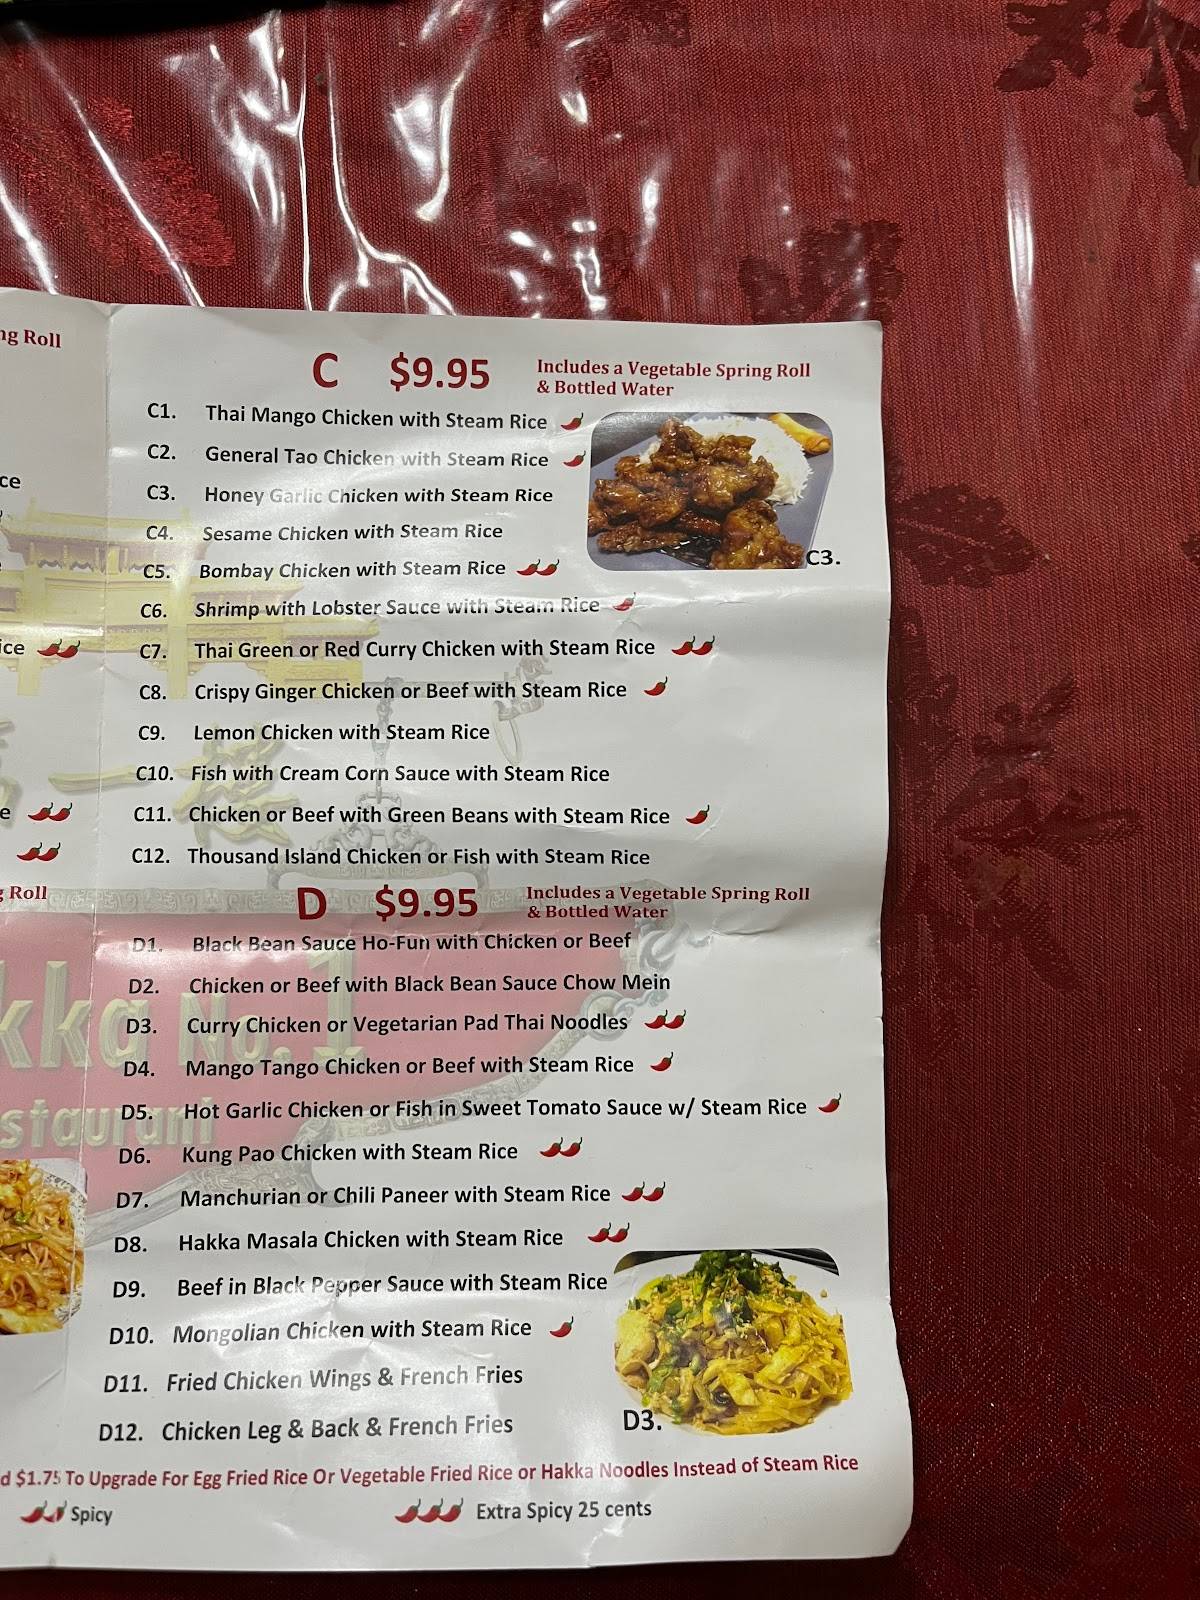 ng Roll
ce
ice
e
g Roll
C $9.95 Includes a Vegetable Spring Roll
& Bottled Water
C1. Thai Mango Chicken with Steam Rice
C2. General Tao Chicken with Steam Rice
C3. Honey Garlic Chicken with Steam Rice
C4. Sesame Chicken with Steam Rice
C3.
C5. Bombay Chicken with Steam Rice
C6. Shrimp with Lobster Sauce with Steam Rice
C7. Thai Green or Red Curry Chicken with Steam Rice
C8. Crispy Ginger Chicken or Beef with Steam Rice
C9. Lemon Chicken with Steam Rice
C10. Fish with Cream Corn Sauce with Steam Rice
C11. Chicken or Beef with Green Beans with Steam Rice
C12. Thousand Island Chicken or Fish with Steam Rice
D $9.95 Includes a Vegetable Spring Roll
& Bottled Water
D1. Black Bean Sauce Ho-Fun with Chicken or Beef
D2. Chicken or Beef with Black Bean Sauce Chow Mein
D3. Curry Chicken or Vegetarian Pad Thai Noodles
D4. Mango Tango Chicken or Beef with Steam Rice
D5. Hot Garlic Chicken or Fish in Sweet Tomato Sauce w/ Steam Rice
D6. Kung Pao Chicken with Steam Rice
D7. Manchurian or Chili Paneer with Steam Rice
D8. Hakka Masala Chicken with Steam Rice
D9. Beef in Black Pepper Sauce with Steam Rice
D10. Mongolian Chicken with Steam Rice
D11. Fried Chicken Wings & French Fries
D12. Chicken Leg & Back & French Fries
D3.
d $1.75 To Upgrade For Egg Fried Rice Or Vegetable Fried Rice or Hakka Noodles Instead of Steam Rice
Spicy Extra Spicy 25 cents
一楼
kka No.1
staurant